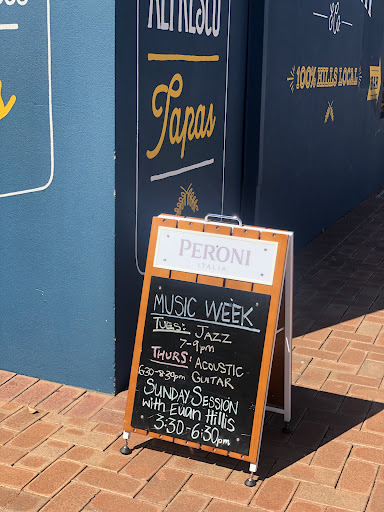 ALFRESCO
Tapas
100% HILLS LOCAL
PERONI
ITALIA
MUSIC WEEK
TUES: JAZZ
7-9pm
THURS: ACOUSTIC
6:30-8:30pm GUITAR
SUNDAY SESSION
with Evan Hillis
3:30-6:30pm